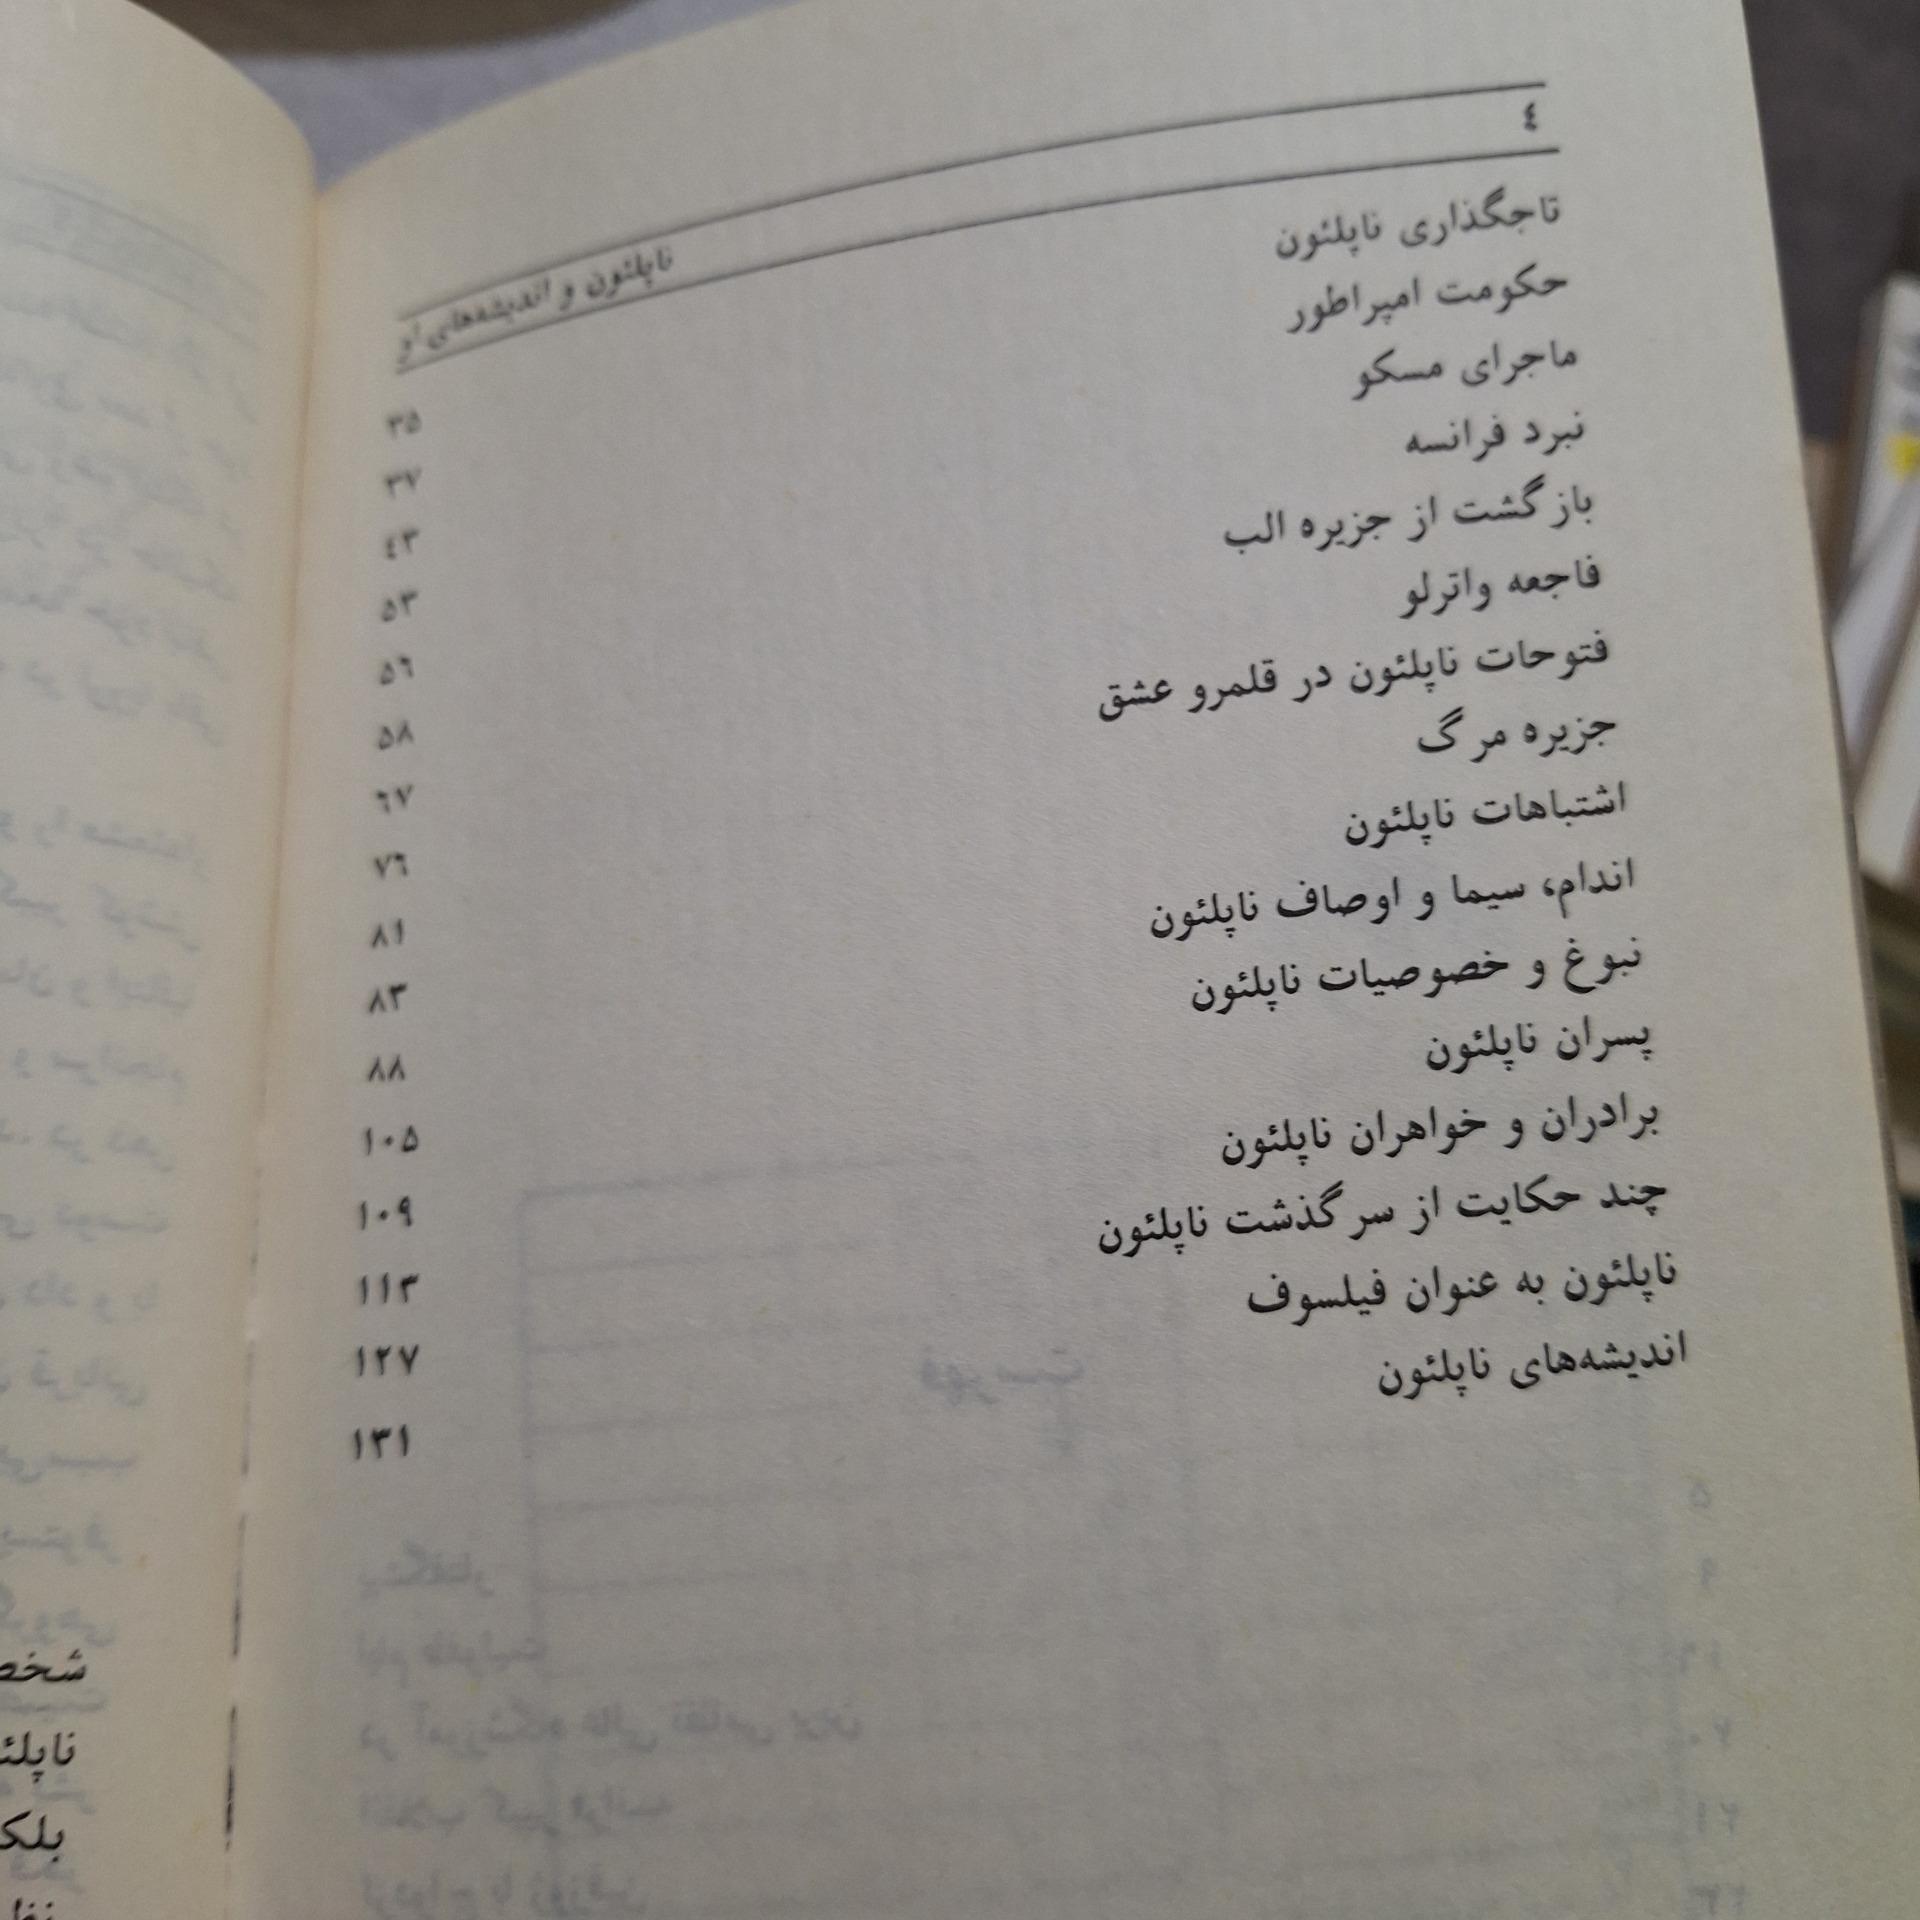 ٤
ناپلئون و اندیشه‌های او
تاجگذاری ناپلئون ۳۵
حکومت امپراطور ۳۷
ماجرای مسکو ٤۳
نبرد فرانسه ۵۳
بازگشت از جزیره الب ۵٦
فاجعه واترلو ۵۸
فتوحات ناپلئون در قلمرو عشق ٦۷
جزیره مرگ ۷٦
اشتباهات ناپلئون ۸۱
اندام، سیما و اوصاف ناپلئون ۸۳
نبوغ و خصوصیات ناپلئون ۸۸
پسران ناپلئون ۱۰۵
برادران و خواهران ناپلئون ۱۰۹
چند حکایت از سرگذشت ناپلئون ۱۱۳
ناپلئون به عنوان فیلسوف ۱۲۷
اندیشه‌های ناپلئون ۱۳۱